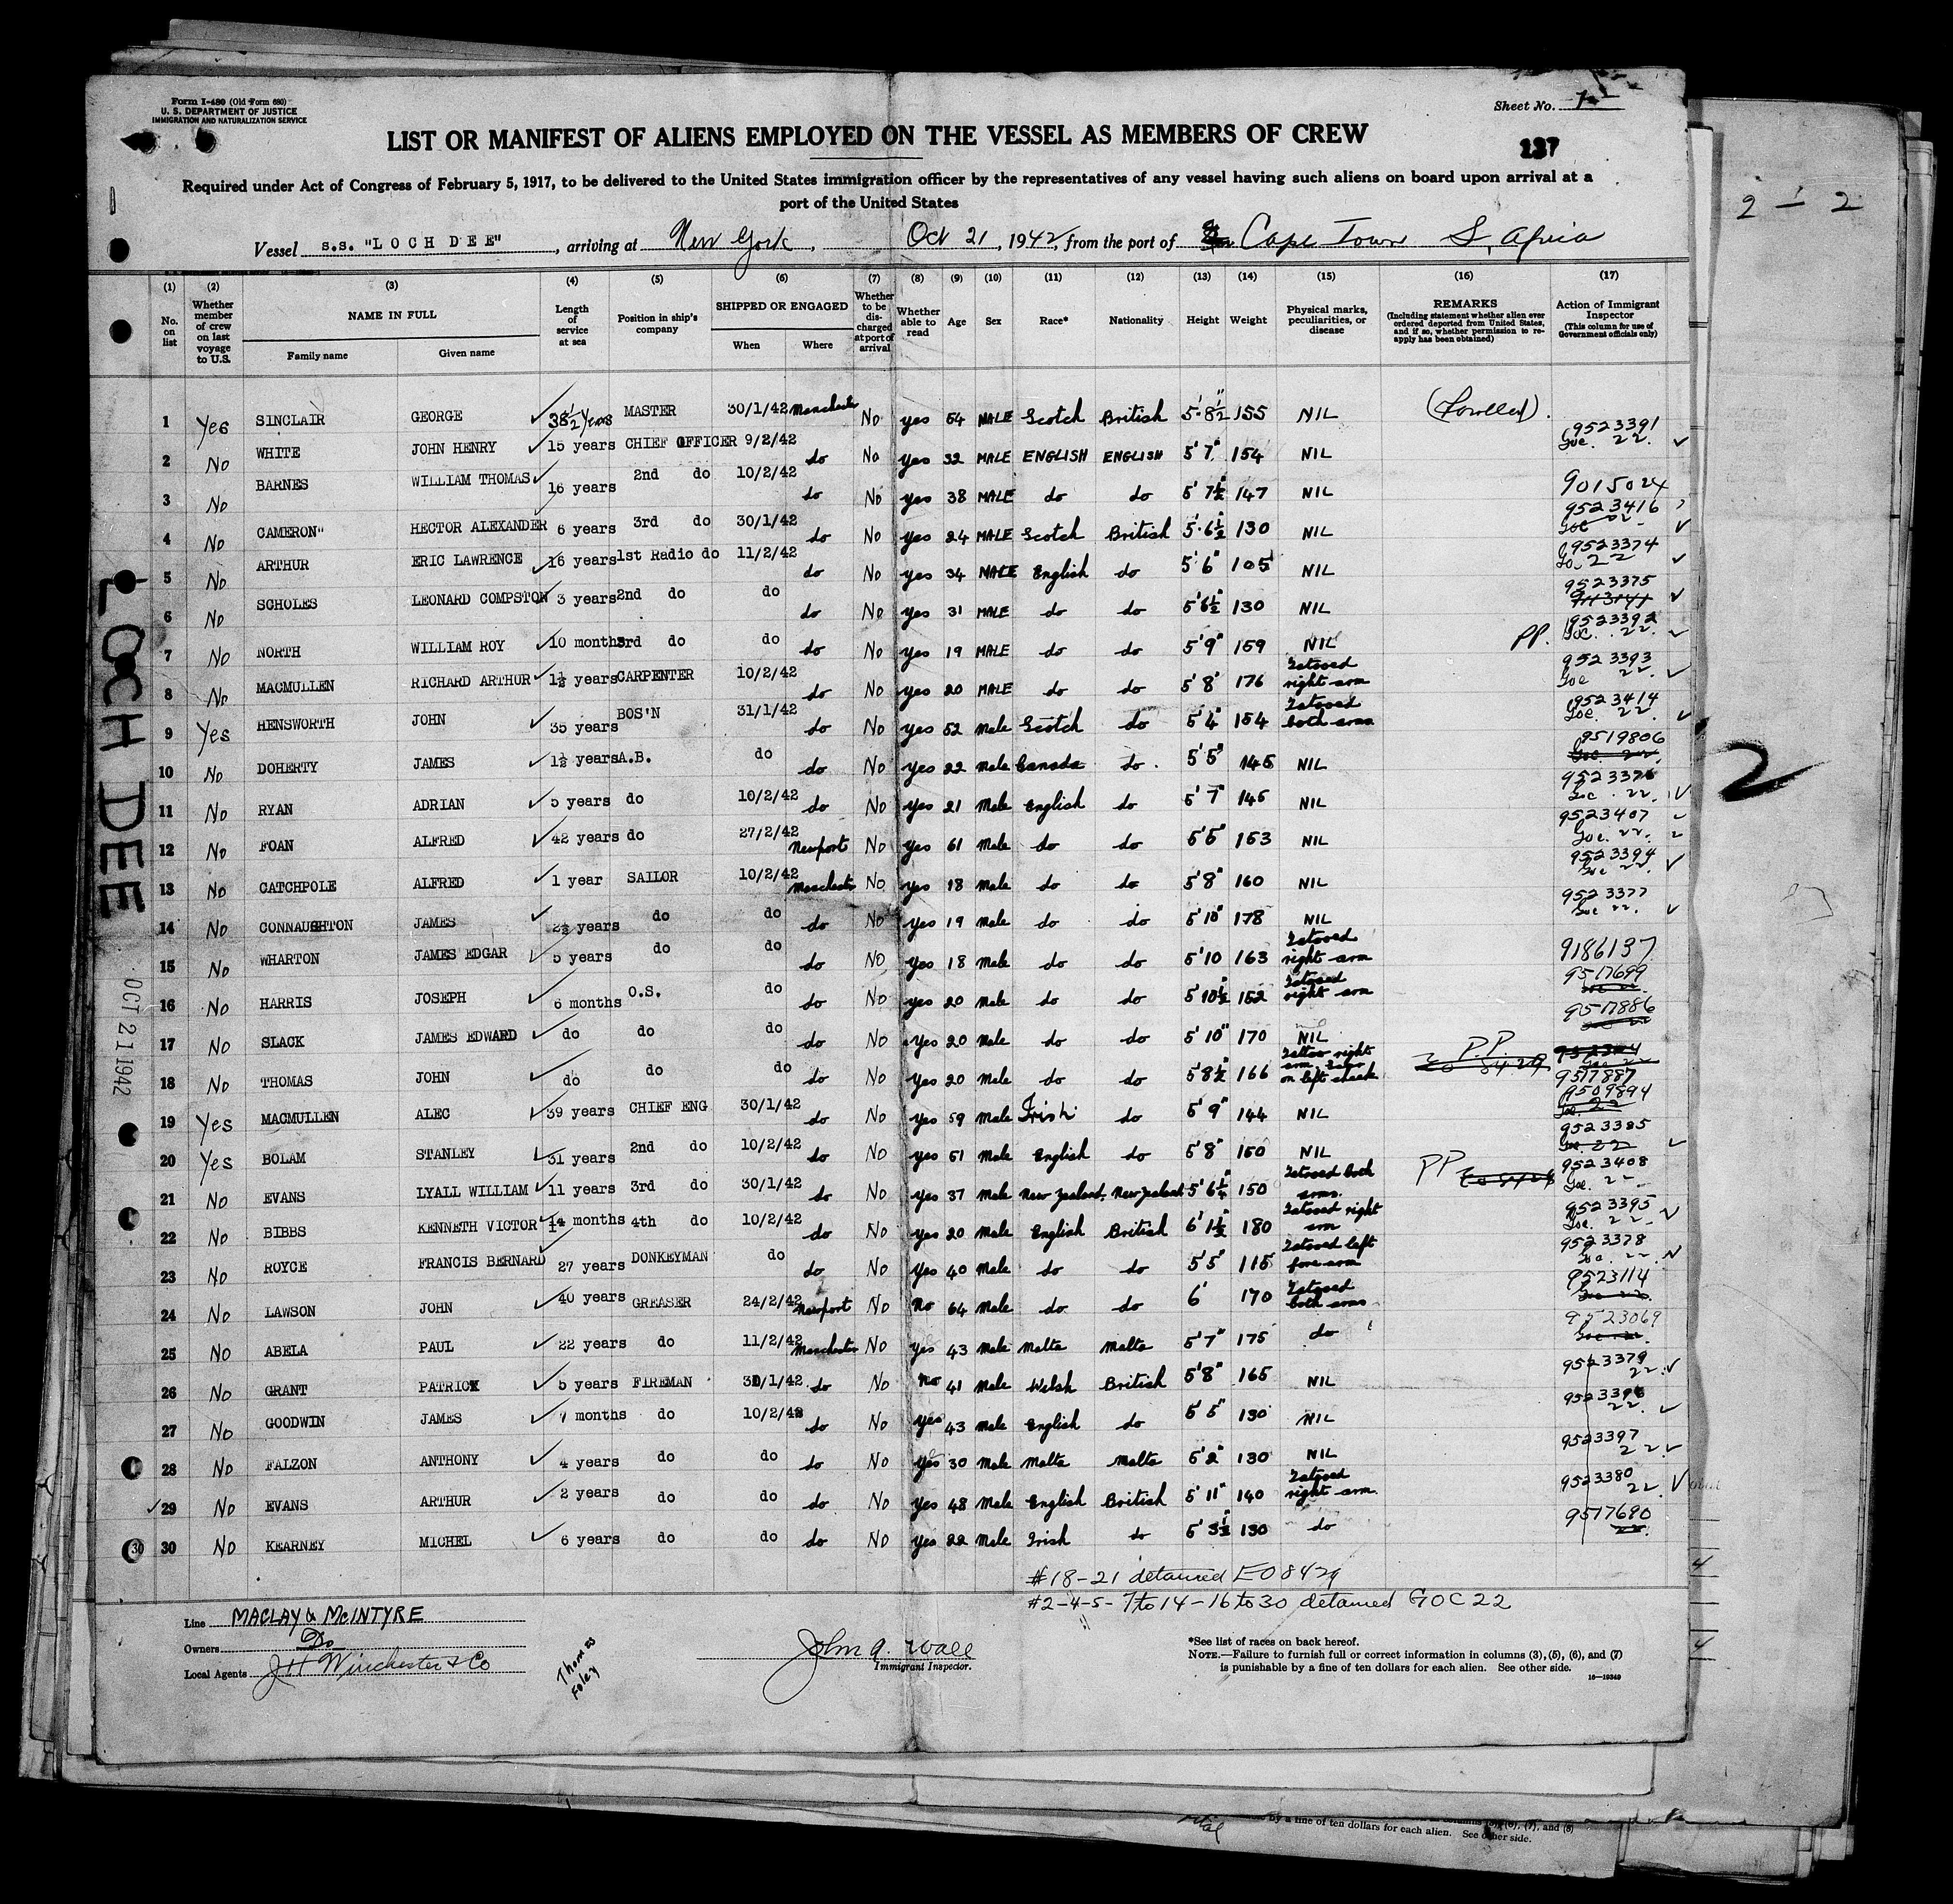 Form I-480 (Old Form 680)
U. S. DEPARTMENT OF JUSTICE
IMMIGRATION AND NATURALIZATION SERVICE
Sheet No. 1
LIST OR MANIFEST OF ALIENS EMPLOYED ON THE VESSEL AS MEMBERS OF CREW
137
Required under Act of Congress of February 5, 1917, to be delivered to the United States immigration officer by the representatives of any vessel having such aliens on board upon arrival at a
port of the United States
Vessel s.s. "LOCH DEE", arriving at New York, Oct 21, 1942, from the port of Cape Town S. Africa
(1) (2) (3) (4) (5) (6) (7) (8) (9) (10) (11) (12) (13) (14) (15) (16) (17)
No. on list
Whether member of crew on last voyage to U.S.
NAME IN FULL
Family name
Given name
Length of service at sea
Position in ship's company
SHIPPED OR ENGAGED
When
Where
Whether to be discharged at port of arrival
Whether able to read
Age
Sex
Race*
Nationality
Height
Weight
Physical marks, peculiarities, or disease
REMARKS
(Including statement whether alien ever ordered deported from United States, and if so, whether permission to reapply has been obtained)
Action of Immigrant Inspector
(This column for use of Government officials only)
1 Yes SINCLAIR GEORGE 38½ Years MASTER 30/1/42 Manchester No yes 54 MALE Scotch British 5'8½" 155 NIL
2 No WHITE JOHN HENRY 15 years CHIEF OFFICER 9/2/42 do No yes 32 MALE ENGLISH ENGLISH 5'7" 154 NIL 9523391 Goc. 22.
3 No BARNES WILLIAM THOMAS 16 years 2nd do 10/2/42 do No yes 38 MALE do do 5'7½ 147 NIL 9015024
4 No CAMERON" HECTOR ALEXANDER 6 years 3rd do 30/1/42 do No yes 24 MALE Scotch British 5'6½ 130 NIL 9523416
5 No ARTHUR ERIC LAWRENCE 16 years 1st Radio do 11/2/42 do No yes 34 MALE English do 5'6" 105 NIL 9523374 Goc 22
6 No SCHOLES LEONARD COMPSTON 3 years 2nd do do do No yes 31 MALE do do 5'6½ 130 NIL 9523375
7 No NORTH WILLIAM ROY 10 months 3rd do do do No yes 19 MALE do do 5'9" 159 NIL PP. 9523392 Goc. 22.
8 No MACMULLEN RICHARD ARTHUR 1½ years CARPENTER 10/2/42 do No yes 20 MALE do do 5'8" 176 Tatooed right arm 9523393 Goc 22.
9 Yes HENSWORTH JOHN 35 years BOS'N 31/1/42 do No yes 52 Male Scotch do 5'4" 154 Tatooed both arms 9523414 Goc. 22.
10 No DOHERTY JAMES 1½ years A.B. do do No yes 22 Male Canada do. 5'5" 145 NIL 9519806 Goc 22.
11 No RYAN ADRIAN 5 years do 10/2/42 do No yes 21 Male English do 5'7" 145 NIL 9523376 Goc. 22.
12 No FOAN ALFRED 42 years do 27/2/42 Newport No yes 61 Male do do 5'5" 153 NIL 9523407 Goc. 22.
13 No CATCHPOLE ALFRED 1 year SAILOR 10/2/42 Manchester No yes 18 Male do do 5'8" 160 NIL 9523394 Goc 22.
14 No CONNAUGHTON JAMES 2½ years do do do No yes 19 Male do do 5'10" 178 NIL 9523377 Goc 22.
15 No WHARTON JAMES EDGAR 5 years do do do No yes 18 Male do do 5'10 163 Tatooed right arm 9186137
16 No HARRIS JOSEPH 6 months O.S. do do No yes 20 Male do do 5'10½ 152 Tatooed right arm 9517699
17 No SLACK JAMES EDWARD do do do do No yes 20 Male do do 5'10" 170 NIL 9517886
18 No THOMAS JOHN do do do do No yes 20 Male do do 5'8½ 166 Tattoo right arm, on left cheek P.P EO 8429 9517887
19 Yes MACMULLEN ALEC 39 years CHIEF ENG 30/1/42 do No yes 59 Male Irish do 5'9" 144 NIL 9509894 Goc. 22
20 Yes BOLAM STANLEY 31 years 2nd do 10/2/42 do No yes 51 Male English do 5'8" 150 NIL 9523385 Goc 22
21 No EVANS LYALL WILLIAM 11 years 3rd do 30/1/42 do No yes 37 Male New Zealand, New Zealand 5'6¼ 150 Tatooed both arms. PP EO 8429 9523408 Goc. 22
22 No BIBBS KENNETH VICTOR 14 months 4th do 10/2/42 do No yes 20 Male English British 6'1½ 180 Tatooed right arm 9523395 Goc. 22
23 No ROYCE FRANCIS BERNARD 27 years DONKEYMAN do do No yes 40 Male do do 5'5" 115 Tatooed left fore arm 9523378 Goc. 22
24 No LAWSON JOHN 40 years GREASER 24/2/42 Newport No no 64 Male do do 6' 170 Tatooed both arms 9523114
25 No ABELA PAUL 22 years do 11/2/42 Manchester No yes 43 Male Malta Malta 5'7" 175 do 9523069
26 No GRANT PATRICK 5 years FIREMAN 30/1/42 do No no 41 Male Welsh British 5'8" 165 NIL 9523379 22.
27 No GOODWIN JAMES 7 months do 10/2/42 do No yes 43 Male English do 5'5" 130 NIL 9523396 22.
28 No FALZON ANTHONY 4 years do do do No yes 30 Male Malta Malta 5'2" 130 NIL 9523397 22
29 No EVANS ARTHUR 2 years do do do No yes 48 Male English British 5'11" 140 Tatooed right arm. 9523380 22.
30 No KEARNEY MICHEL 6 years do do do No yes 22 Male Irish do 5'3½ 130 do 9517690 22.
#18-21 detained EO8429
#2-4-5-7 to 14-16 to 30 detained GOC22
Line MACLAY & McINTYRE
Owners Do
Local Agents J H Winchester & Co
Thomas Foley
John A. Wall
Immigrant Inspector.
*See list of races on back hereof.
NOTE.—Failure to furnish full or correct information in columns (3), (5), (6), and (7)
is punishable by a fine of ten dollars for each alien. See other side.
16—19349
LOCH DEE
OCT 21 1942
2 - 2
2
by a fine of ten dollars for each alien. See other side.